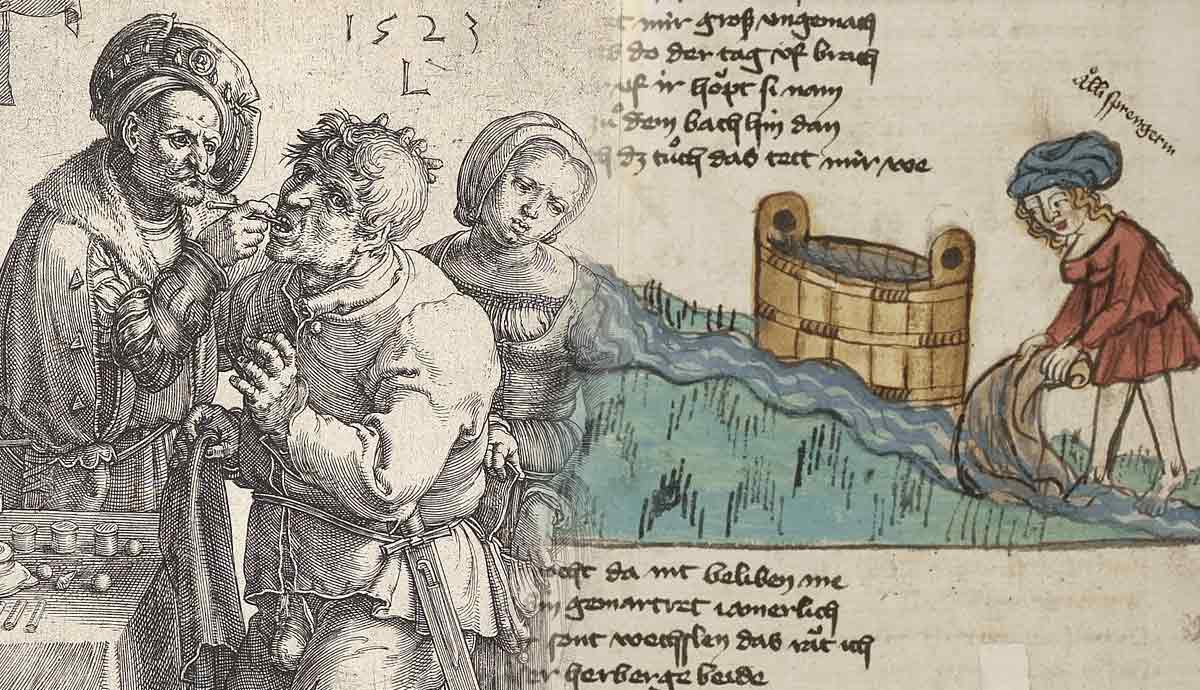 1523
L
mir groß vngemach
do der tag vf brach
vf ir hoͤpt si nam
dem bach hin dan
dz tuͦch das tett mir we
sprengerin
da nit beliben me
gemartret iamerlich
sont wechsslen das raͧt ich
herberge beide